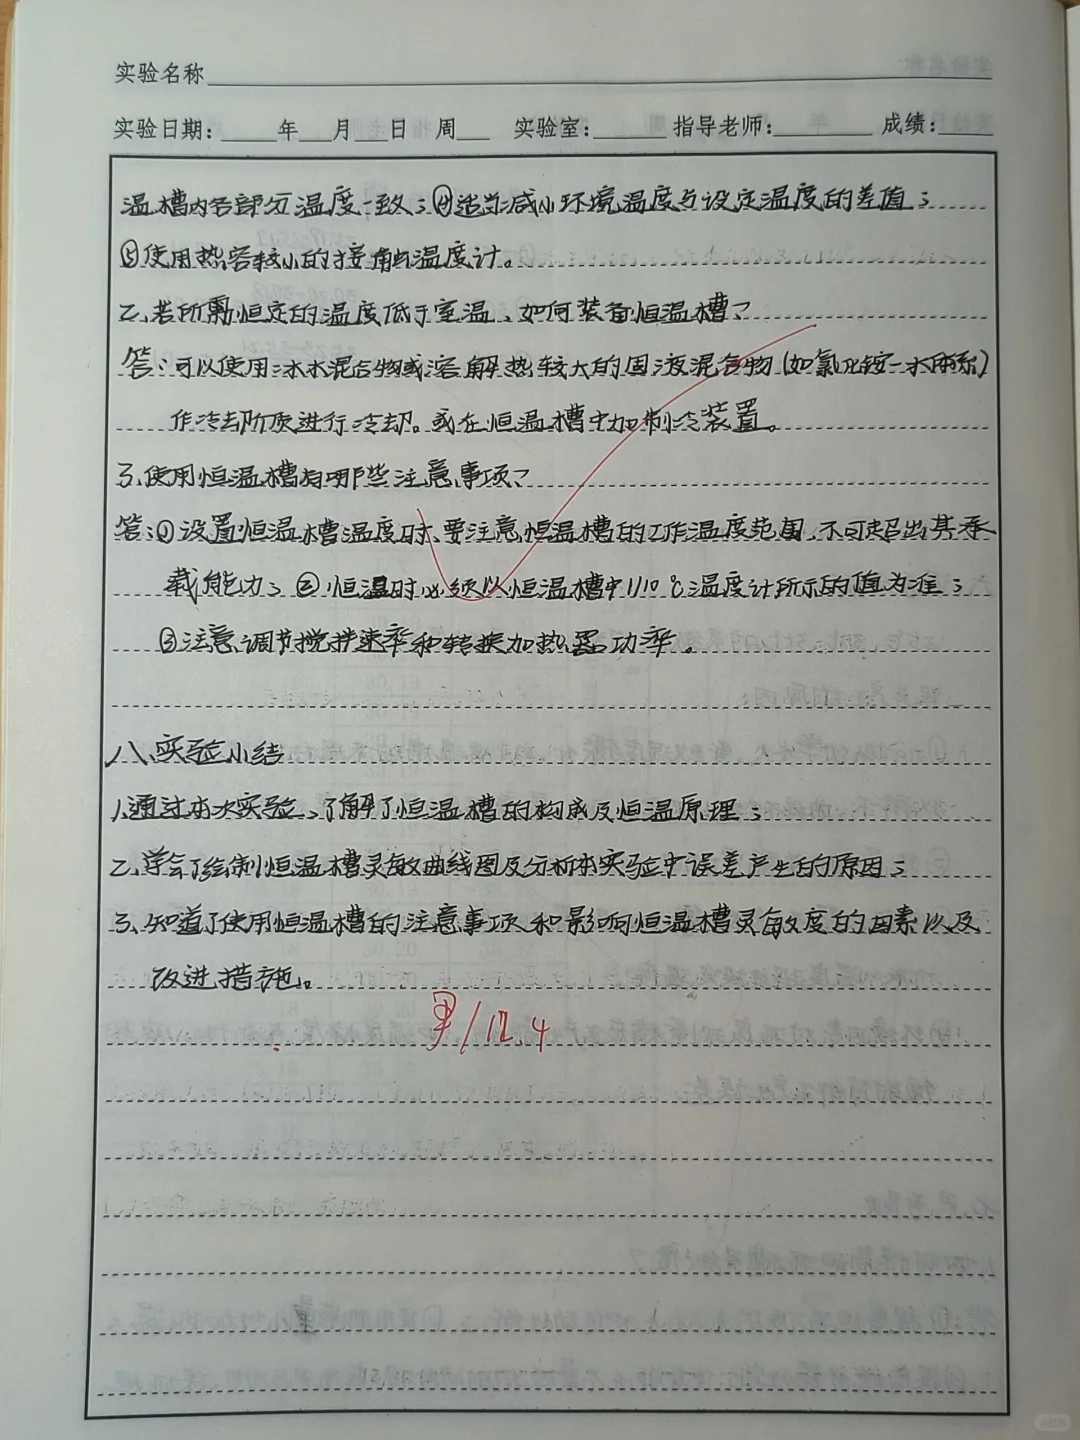 实验名称
实验日期: 年 月 日 周 实验室: 指导老师: 成绩:
温槽内各部分温度一致；④适当减小环境温度与设定温度的差值；
⑤使用热容较小的接触温度计。
2、若所需恒定的温度低于室温、如何装备恒温槽？
答：可以使用冰水混合物或溶解热较大的固液混合物(如氯化铵-水体系)
作冷却介质进行冷却。或在恒温槽中加制冷装置。
3、使用恒温槽有哪些注意事项？
答：①设置恒温槽温度时、要注意恒温槽的工作温度范围、不可超出其承
载能力；②恒温时必须以恒温槽中1/10℃温度计所示的值为准；
③注意调节搅拌速率和转换加热器功率。
八、实验小结
1.通过本次实验、了解了恒温槽的构成及恒温原理；
2、学会了绘制恒温槽灵敏曲线图及分析本实验中误差产生的原因；
3、知道了使用恒温槽的注意事项和影响恒温槽灵敏度的因素以及
改进措施。
/12.4